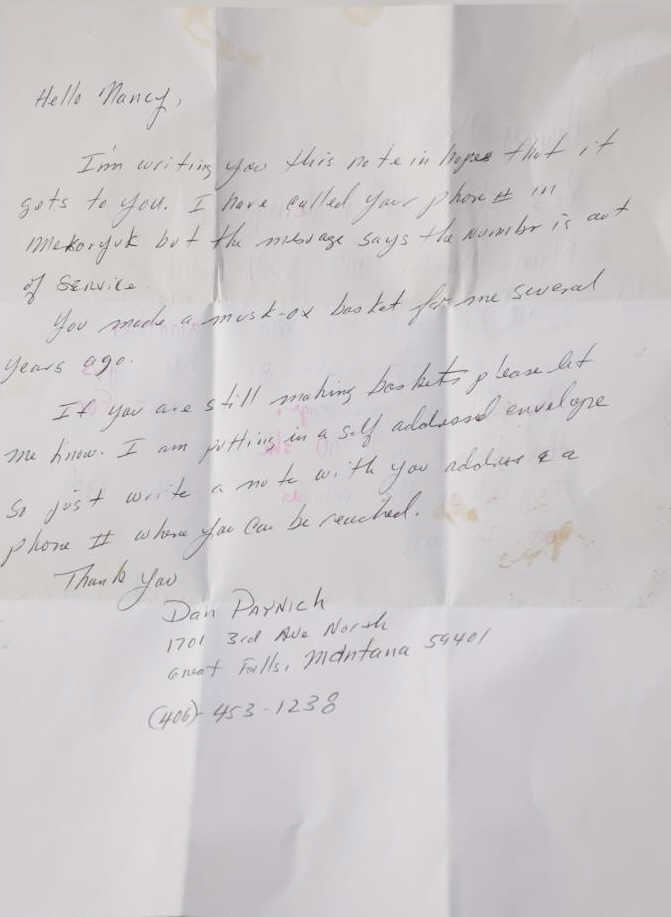 Hello Nancy,
I'm writing you this note in hopes that it
gets to you. I have called your phone # in
Mekoryuk but the message says the number is out
of service.
You made a musk-ox basket for me several
years ago.
If you are still making baskets please let
me know. I am putting in a self addressed envelope
So just write a note with you address & a
phone # where you can be reached.
Thank you
Dan Paynich
1701 3rd Ave North
Great Falls, Montana 59401
(406)-453-1238